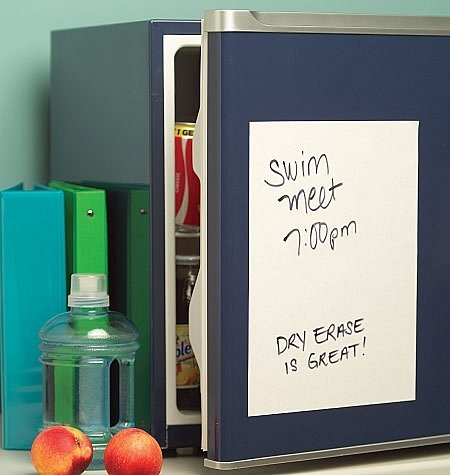 Swim
meet
7:00pm
DRY ERASE
IS GREAT!